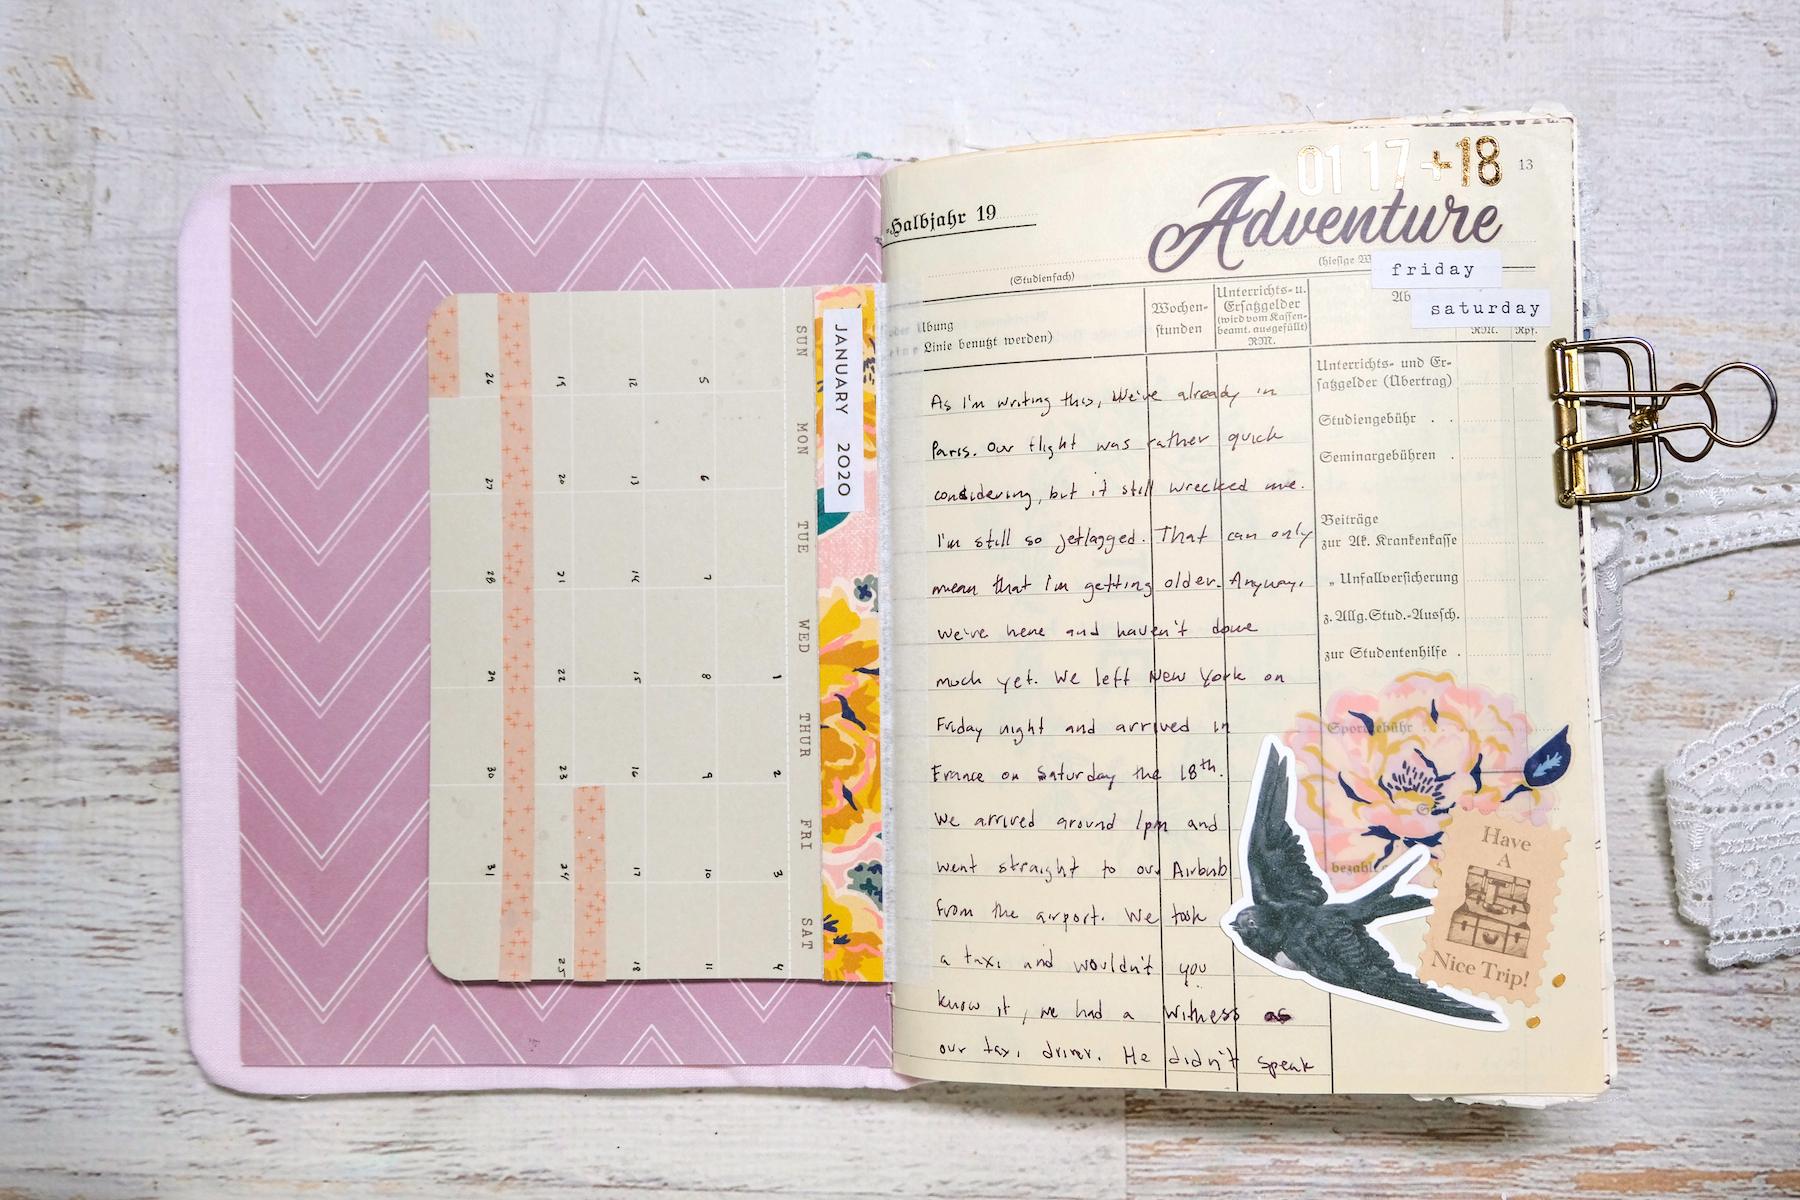 JANUARY 2020
SUN MON TUE WED THUR FRI SAT
1 2 3 4
5 6 7 8 9 10 11
12 13 14 15 16 17 18
19 20 21 22 23 24 25
26 27 28 29 30 31
01 17 +18
13
Halbjahr 19
Adventure
(Studienfach)
(hiesige
friday
saturday
Übung
Linie benutzt werden)
Wochen-
stunden
Unterrichts- u.
Ersatzgelder
(wird vom Kassen-
beamt. ausgefüllt)
RM.
Ab
RM. Rpf.
As I'm writing this, We've already in
Paris. Our flight was rather quick
considering, but it still wrecked me.
I'm still so jetlagged. That can only
mean that I'm getting older. Anyway,
we're here and haven't done
much yet. We left New York on
Friday night and arrived in
France on Saturday the 18th.
We arrived around 1pm and
went straight to our Airbnb
from the airport. We took
a taxi and wouldn't you
know it, we had a witness as
our taxi driver. He didn't speak
Unterrichts- und Er-
satzgelder (Übertrag)
Studiengebühr . .
Seminargebühren .
Beiträge
zur Ak. Krankenkasse
„ Unfallversicherung
z. Allg. Stud.-Aussch.
zur Studentenhilfe .
Sportgebühr
bezahlt
Have
A
Nice Trip!